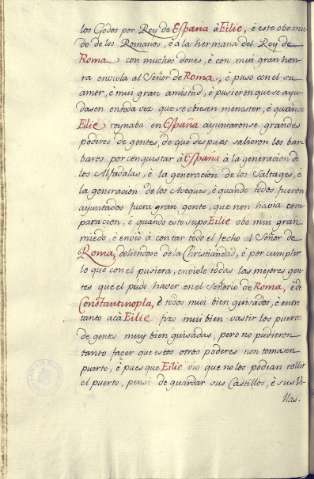 los Godos por Rey de España à Eilie, è este obo mu
do de los Romanos, ò à la hermana del Rey de
Roma con muchos dones, è con mui gran hon
ra enviola al Señor de Roma, è puso con el su
amor, è mui gran amistad, è pusieron que se ayu
dasen entrava vez que se obiesen menester, è quando
Elie reynaba en España ayuntaronse grandes
poderes de gentes, de que despues salieron los bar
baros por conquistar à España à la generacion de
los Alfadalas, è la generacion de los Valtrages, è
la generacion de los Aseques, è quando todos fueron
ayuntados fuera gran gente, que non havia com
paracion, è quando esto supo Eilie obo mui gran
miedo, è envió à contar todo el fecho al Señor de
Roma, defendedor de la Christiandad, è por cumplir
lo que con el pusiera, enviole todas las mejores gen
tes que el pudo haver en el Señorio de Roma, è de
Constantinopla, è todos mui bien guisados, è entre
tanto acà Eilie fizo mui bien bastir los puertos
de gentes muy bien guisadas, pero no pudieron
tanto facer que estos otros poderes non tomasen
puerto, è pues que Eilie vio que no les podian toller
el puerto, pensó de guardar sus Castillos, è sus Vi
llas.